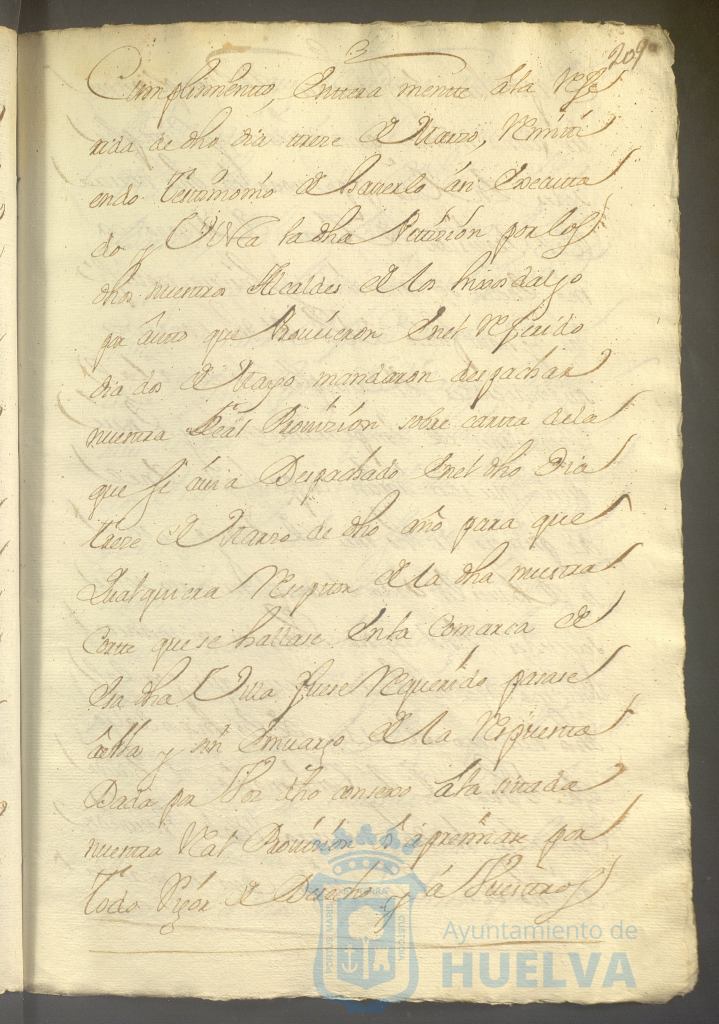 209
Cumplimiento, Entera mente â la Refe
rida de dho dia trece de Marzo, Remiti
endo testimonio de haverlo ân Executa
do y Vista la dha Peticiôn por los
dhos nuestros Alcaldes de los hixos dalgo
por âuto que Proveieron Enel Referido
dia dos de Mayo mandaron despachar
nuestra Real Proviziôn sobre carta dela
que se âvia Despachado Enel dho Dia
trece de Marzo de dho año para que
Qualquiera Receptor de la dha nuestra
Corte que se hallase Enla Comarca de
Esa dha Villa fuese Requerido pasase
âella y sin Embargo de la Respuesta
Dada por Vos dho consexo âla sitada
nuestra Rl Proviziôn ôs âpremiase por
todo Rigôr de Derecho y â Vuestros
PORTUS MARIS
CUSTODIA
Ayuntamiento de
HUELVA